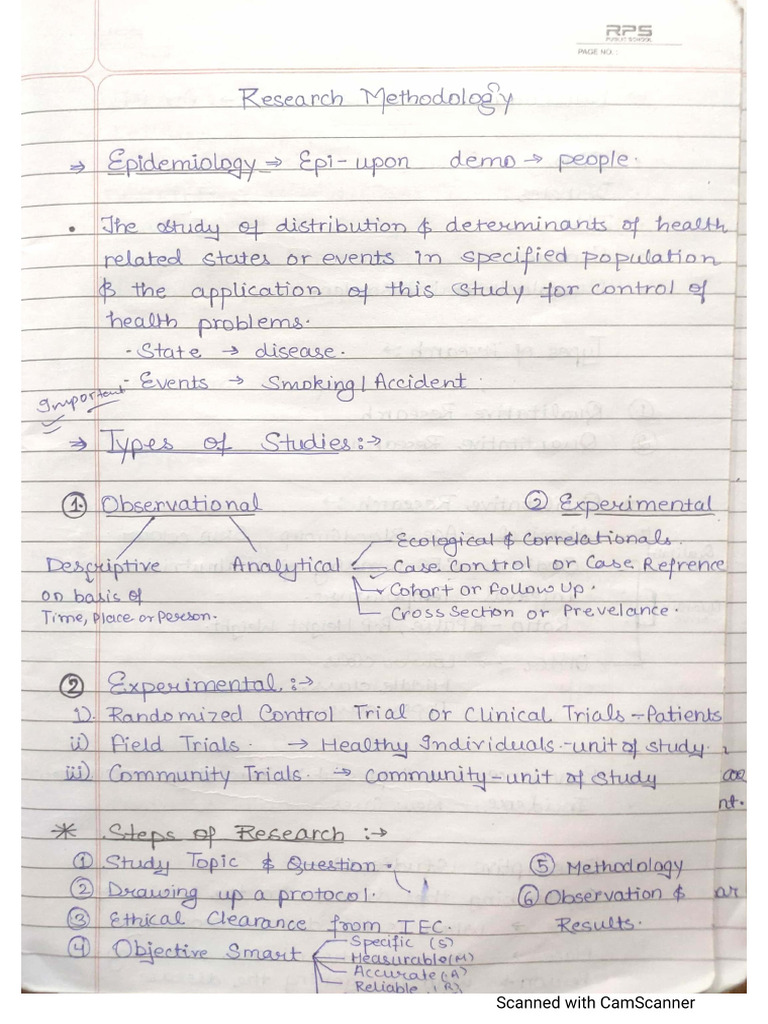 RPS
PUBLIC SCHOOL
PAGE NO. :
Research Methodology
⇒ Epidemiology ⇒ Epi-upon demo → people.
• The study of distribution & determinants of health
related states or events in specified population
& the application of this study for control of
health problems.
- State → disease.
- Events → Smoking/Accident.
Important
⇒ Types of Studies:→
① Observational ② Experimental
Descriptive Analytical
on basis of
Time, place or person.
Ecological & Correlationals.
Case Control or Case Refrence
Cohort or Follow Up.
Cross Section or Prevelance.
② Experimental.:→
i). Randomized Control Trial or Clinical Trials - Patients
ii) Field Trials. → Healthy Individuals - unit of study.
iii) Community Trials → Community - unit of study
nt.
* Steps of Research :→
① Study Topic & Question.
② Drawing up a protocol.
③ Ethical Clearance from IEC.
④ Objective Smart
Specific (S)
Measurable (M)
Accurate (A)
Reliable (R)
⑤ Methodology
⑥ Observation & ar
Results.
Scanned with CamScanner